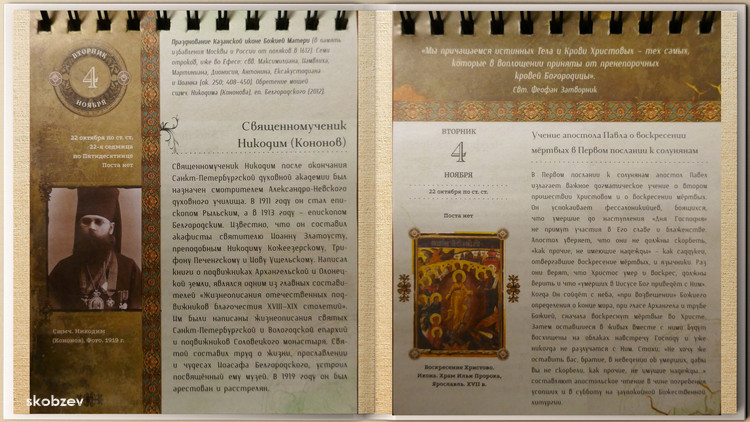 Празднование Казанской иконе Божией Матери (в память
избавления Москвы и России от поляков в 1612). Семи
отроков, иже во Ефесе: свв. Максимилиана, Иамвлиха,
Мартиниана, Дионисия, Антонина, Ексакустодиана
и Иоанна (ок. 250; 408–450). Обретение мощей
сщмч. Никодима (Кононова), еп. Белгородского (2012).
ВТОРНИК
4
НОЯБРЯ
22 октября по ст. ст.
22-я седмица
по Пятидесятнице
Поста нет
Сщмч. Никодим
(Кононов). Фото. 1918 г.
Священномученик
Никодим (Кононов)
Священномученик Никодим после окончания
Санкт-Петербургской духовной академии был
назначен смотрителем Александро-Невского
духовного училища. В 1911 году он стал епи-
скопом Рыльским, а в 1913 году – епископом
Белгородским. Известно, что он составил
акафисты святителю Иоанну Златоусту,
преподобным Никодиму Кожеезерскому, Три-
фону Печенгскому и Иову Ущельскому. Написал
книги о подвижниках Архангельской и Олонец-
кой земли, являлся одним из главных состави-
телей «Жизнеописания отечественных под-
вижников благочестия XVIII–XIX столетий».
Им были написаны жизнеописания святых
Санкт-Петербургской и Вологодской епархий
и подвижников Соловецкого монастыря. Свя-
той составил труд о жизни, прославлении
и чудесах Иоасафа Белгородского, устроил
посвящённый ему музей. В 1919 году он был
арестован и расстрелян.
«Мы причащаемся истинных Тела и Крови Христовых – тех самых,
которые в воплощении приняты от пренепорочных
кровей Богородицы».
Свт. Феофан Затворник
ВТОРНИК
4
НОЯБРЯ
22 октября по ст. ст.
Поста нет
Воскресение Христово.
Икона. Храм Ильи Пророка,
Ярославль. XVII в.
Учение апостола Павла о воскресении
мёртвых в Первом послании к солунянам
В Первом послании к солунянам апостол Павел
излагает важное догматическое учение о втором
пришествии Христовом и о Воскресении мёртвых.
Он успокаивает фессалоникийцев, боящихся,
что умершие до наступления «Дня Господня»
не примут участия в Его славе и блаженстве.
Апостол уверяет, что они не должны скорбеть,
«как прочие, не имеющие надежды» – как саддукеи,
отвергавшие Воскресение мёртвых, и язычники. Раз
они верят, что Христос умер и Воскрес, должны
верить и что «умерших в Иисусе Бог приведёт с Ним».
Когда Он сойдёт с неба, «при возвещении» Божиего
определения о конце мира, при гласе Архангела и трубе
Божией, сначала Воскреснут мёртвые во Христе.
Затем оставшиеся в живых вместе с ними будут
восхищены на облаках навстречу Господу и уже
никогда не разлучатся с Ним. Стиху, «Не хочу же
оставить вас, братие, в неведении об умерших, дабы
вы не скорбели, как прочие, не имущие надежды...»
составляют апостольское чтение в чине погребения
усопших и в субботу на заупокойной Божественной
литургии.
skobzev